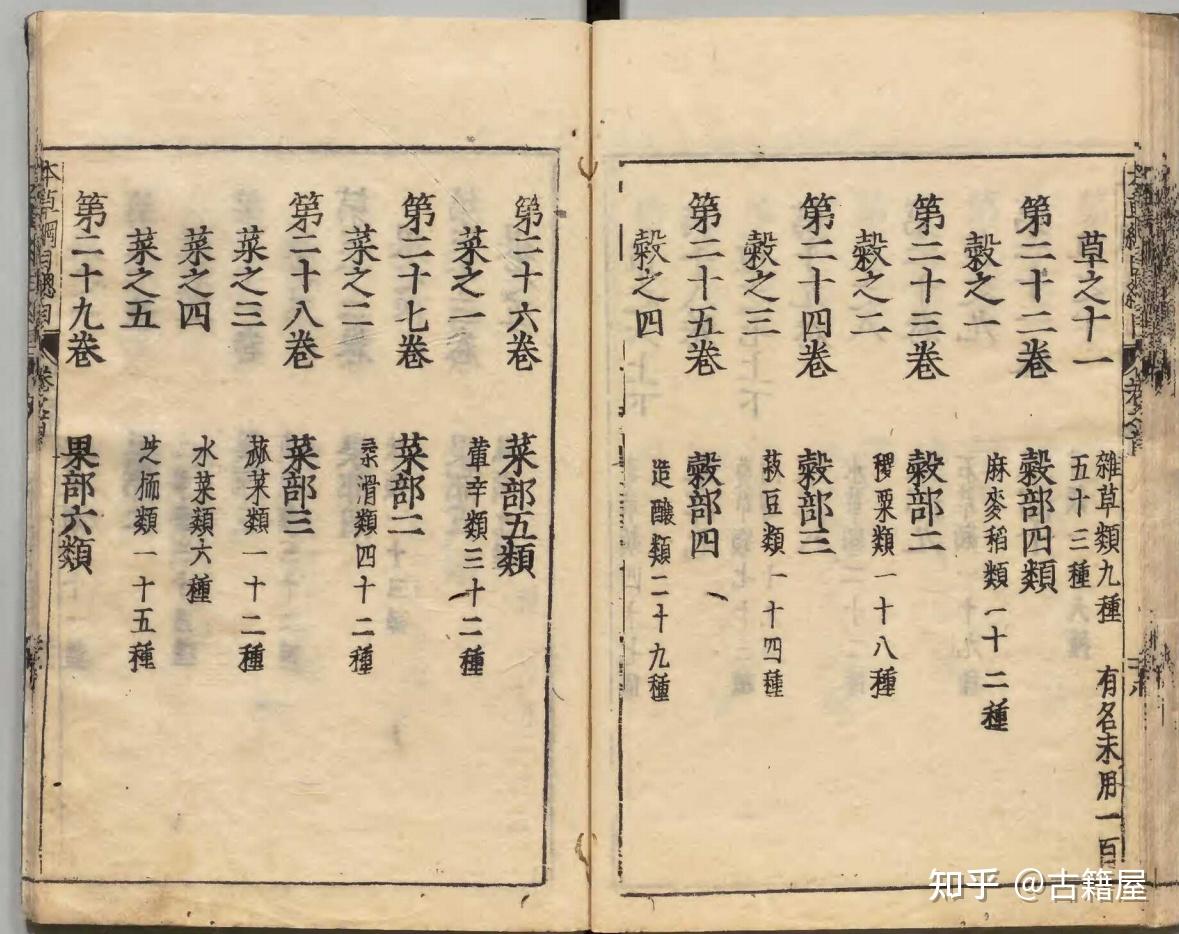 草之十一
雜草類九種 有名未用一百
五十三種
第二十二卷 穀部四類
穀之一 麻麥稻類一十二種
第二十三卷 穀部二
穀之二 稷粟類一十八種
第二十四卷 穀部三
穀之三 菽豆類一十四種
第二十五卷 穀部四
穀之四 造釀類二十九種
第二十六卷 菜部五類
菜之一 葷辛類三十二種
第二十七卷 菜部二
菜之二 柔滑類四十二種
第二十八卷 菜部三
菜之三 蓏菜類一十二種
菜之四 水菜類六種
菜之五 芝栭類一十五種
第二十九卷 果部六類
本草綱目總目 卷之首
知乎 @古籍屋